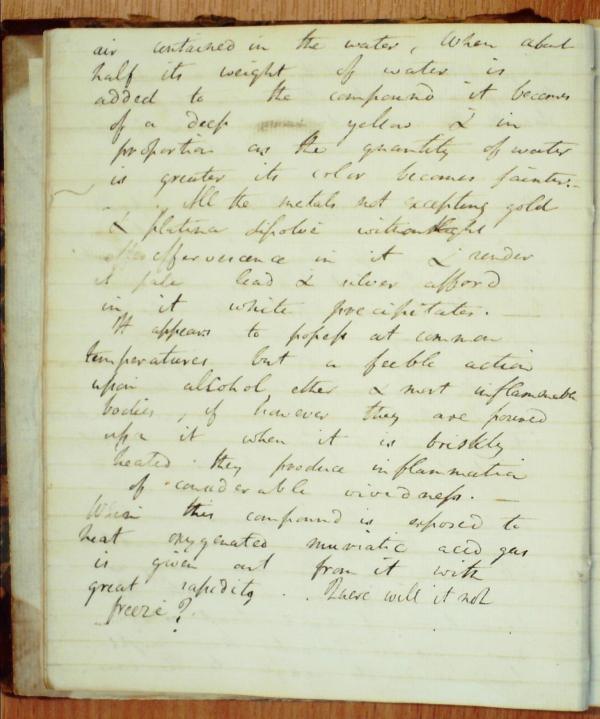 air contained in the water, When about
half its weight of water is
added to the compound it becomes
of a deep yellow & in
proportion as the quantity of water
is greater its color becomes fainter.-
All the metals not excepting gold
& platina dissolve without
effervescence in it & render
it pale lead & silver afford
in it white precipitates.
It appears to possess at common
temperatures but a feeble action
upon alcohol ether & most inflammable
bodies, if however they are poured
upon it when it is briskly
heated they produce inflammation
of considerable vividness. —
When this compound is exposed to
heat oxygenated muriatic acid gas
is given out from it with
great rapidity. Quere will it not
freeze?